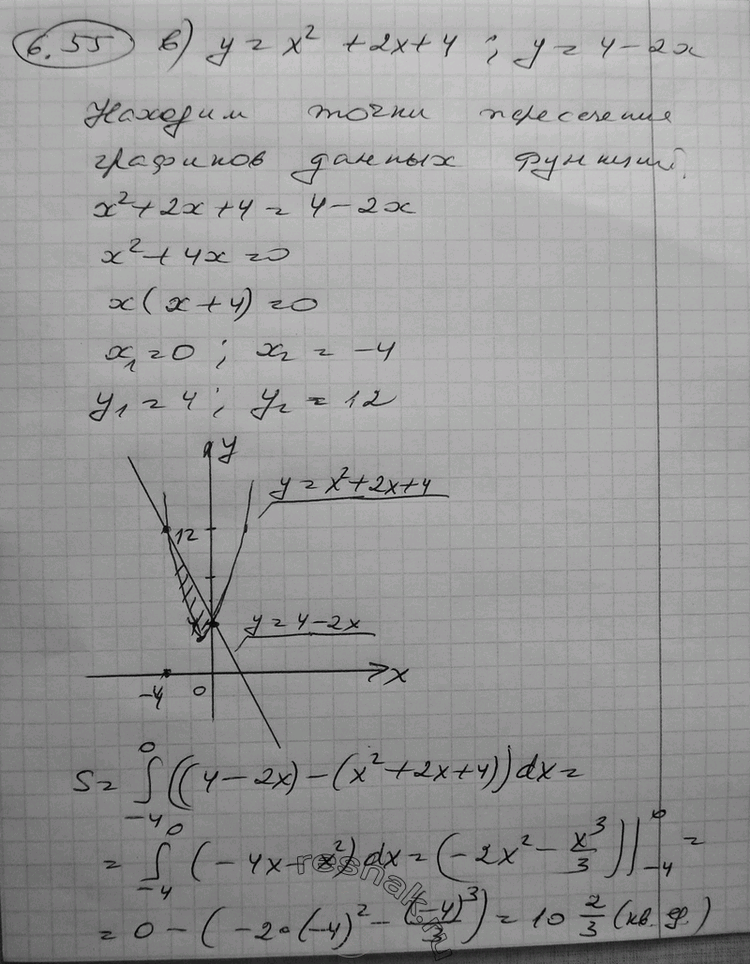 6.55 в) y = x² + 2x + 4 ; y = 4 − 2x
Находим точки пересечения
графиков данных функций.
x² + 2x + 4 = 4 − 2x
x² + 4x = 0
x(x + 4) = 0
x₁ = 0 ; x₂ = −4
y₁ = 4 ; y₂ = 12
y
y = x² + 2x + 4
12
4
y = 4 − 2x
−4 0 x
S = ∫₋₄⁰ ((4 − 2x) − (x² + 2x + 4)) dx =
= ∫₋₄⁰ (−4x − x²) dx = (−2x² − x³/3)|₋₄⁰ =
= 0 − (−2·(−4)² − (−4)³/3) = 10 2/3 (кв. ед.)
reshak.ru